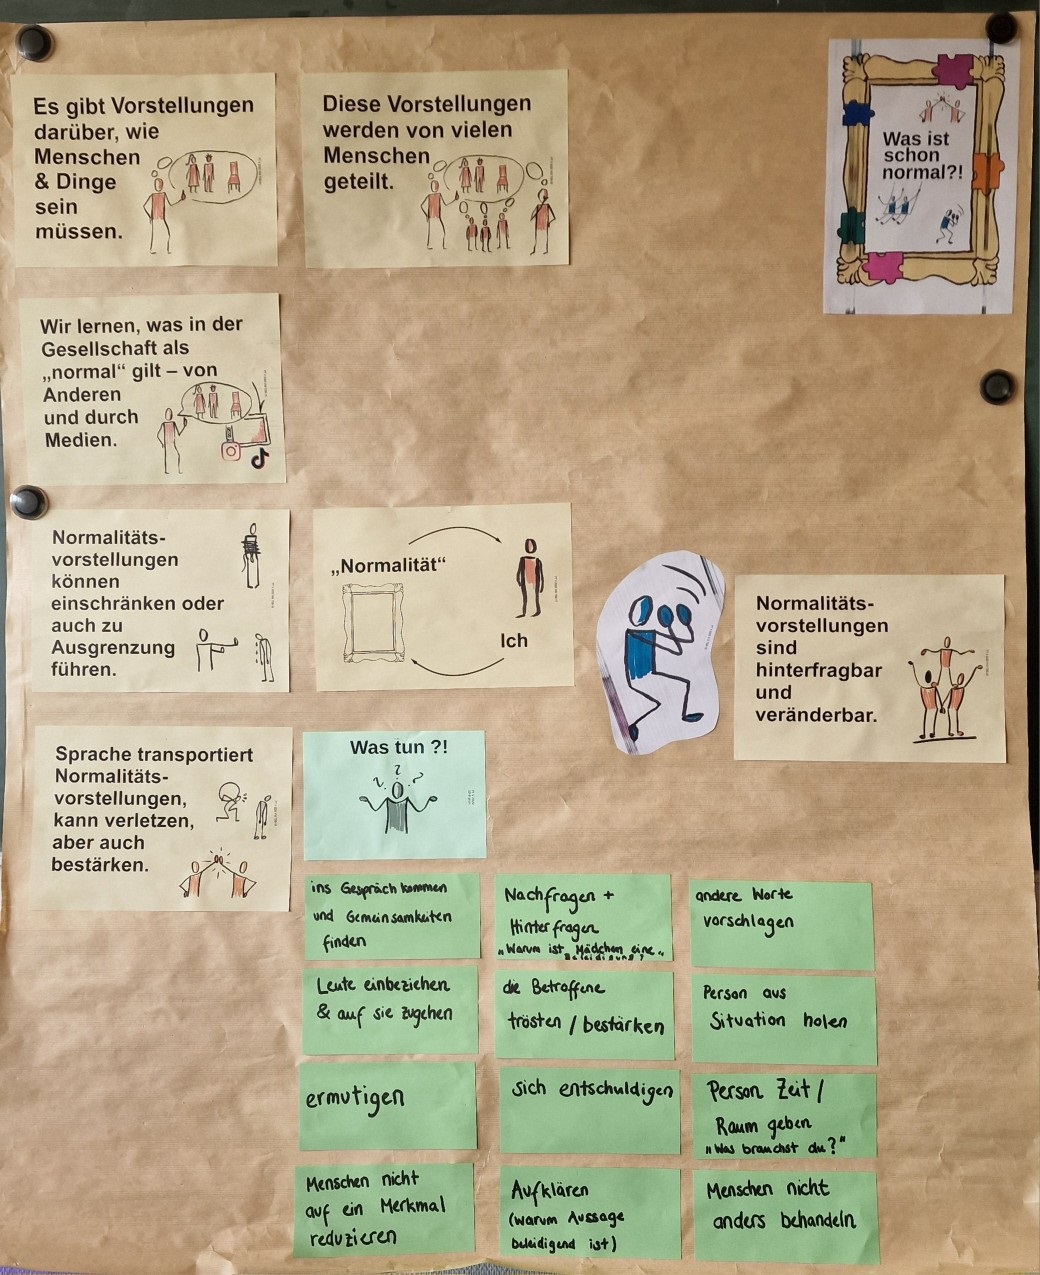 Es gibt Vorstellungen
darüber, wie
Menschen
& Dinge
sein
müssen.
Diese Vorstellungen
werden von vielen
Menschen
geteilt.
Was ist
schon
normal?!
Wir lernen, was in der
Gesellschaft als
„normal“ gilt – von
Anderen
und durch
Medien.
Normalitäts-
vorstellungen
können
einschränken oder
auch zu
Ausgrenzung
führen.
„Normalität“
Ich
Normalitäts-
vorstellungen
sind
hinterfragbar
und
veränderbar.
Sprache transportiert
Normalitäts-
vorstellungen,
kann verletzen,
aber auch
bestärken.
Was tun ?!
? ? ?
ins Gespräch kommen
und Gemeinsamkeiten
finden
Nachfragen +
Hinterfragen
„Warum ist Mädchen eine
Beleidigung?“
andere Worte
vorschlagen
Leute einbeziehen
& auf sie zugehen
die Betroffene
trösten / bestärken
Person aus
Situation holen
ermutigen
sich entschuldigen
Person Zeit /
Raum geben
„Was brauchst du?“
Menschen nicht
auf ein Merkmal
reduzieren
Aufklären
(warum Aussage
beleidigend ist)
Menschen nicht
anders behandeln